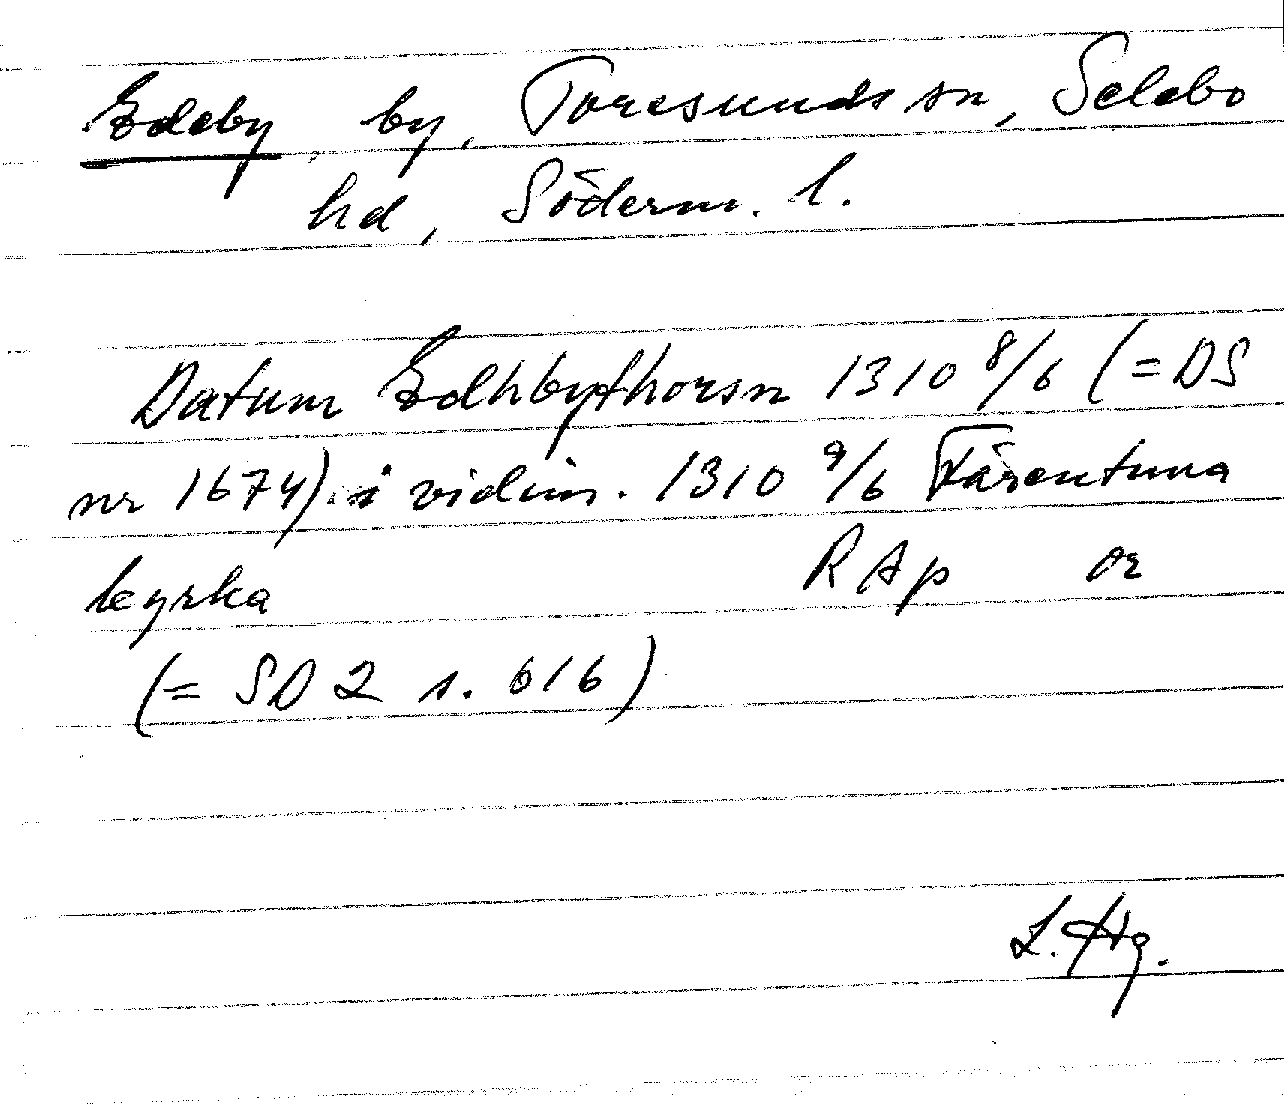 Edeby by, Toresunds sn, Selebo
hd, Söderm. l.
Datum Edhbythorsn 1310 8/6 (= DS
nr 1674) i vidim. 1310 9/6 Färentuna
kyrka RAp or
(= SD 2 s. 616)
L. Hg.